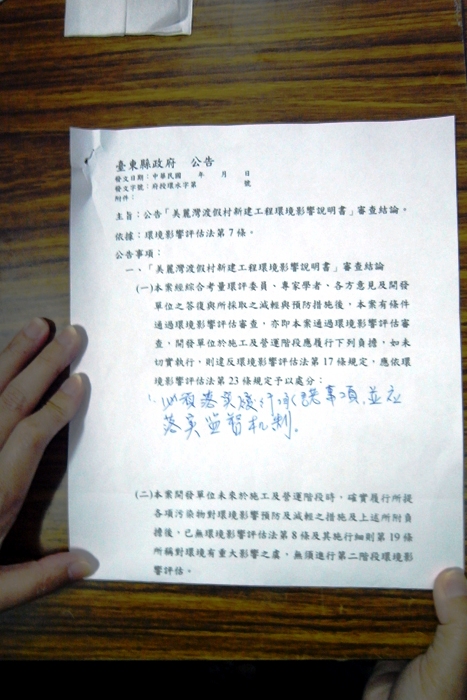 臺東縣政府 公告
發文日期：中華民國 年 月 日
發文字號：府授環水字第 號
附件：
主旨：公告「美麗灣渡假村新建工程環境影響說明書」審查結論。
依據：環境影響評估法第7條。
公告事項：
一、「美麗灣渡假村新建工程環境影響說明書」審查結論
(一)本案經綜合考量環評委員、專家學者、各方意見及開發
單位之答復與所採取之減輕與預防措施後，本案有條件
通過環境影響評估審查，亦即本案通過環境影響評估審
查，開發單位於施工及營運階段應履行下列負擔，如未
切實執行，則違反環境影響評估法第17條規定，應依環
境影響評估法第23條規定予以處分：
必須落實履行承諾事項，並應
落實監督机制。
(二)本案開發單位未來於施工及營運階段時，確實履行所提
各項污染物對環境影響預防及減輕之措施及上述所附負
擔後，已無環境影響評估法第8條及其施行細則第19條
所稱對環境有重大影響之虞，無須進行第二階段環境影
響評估。